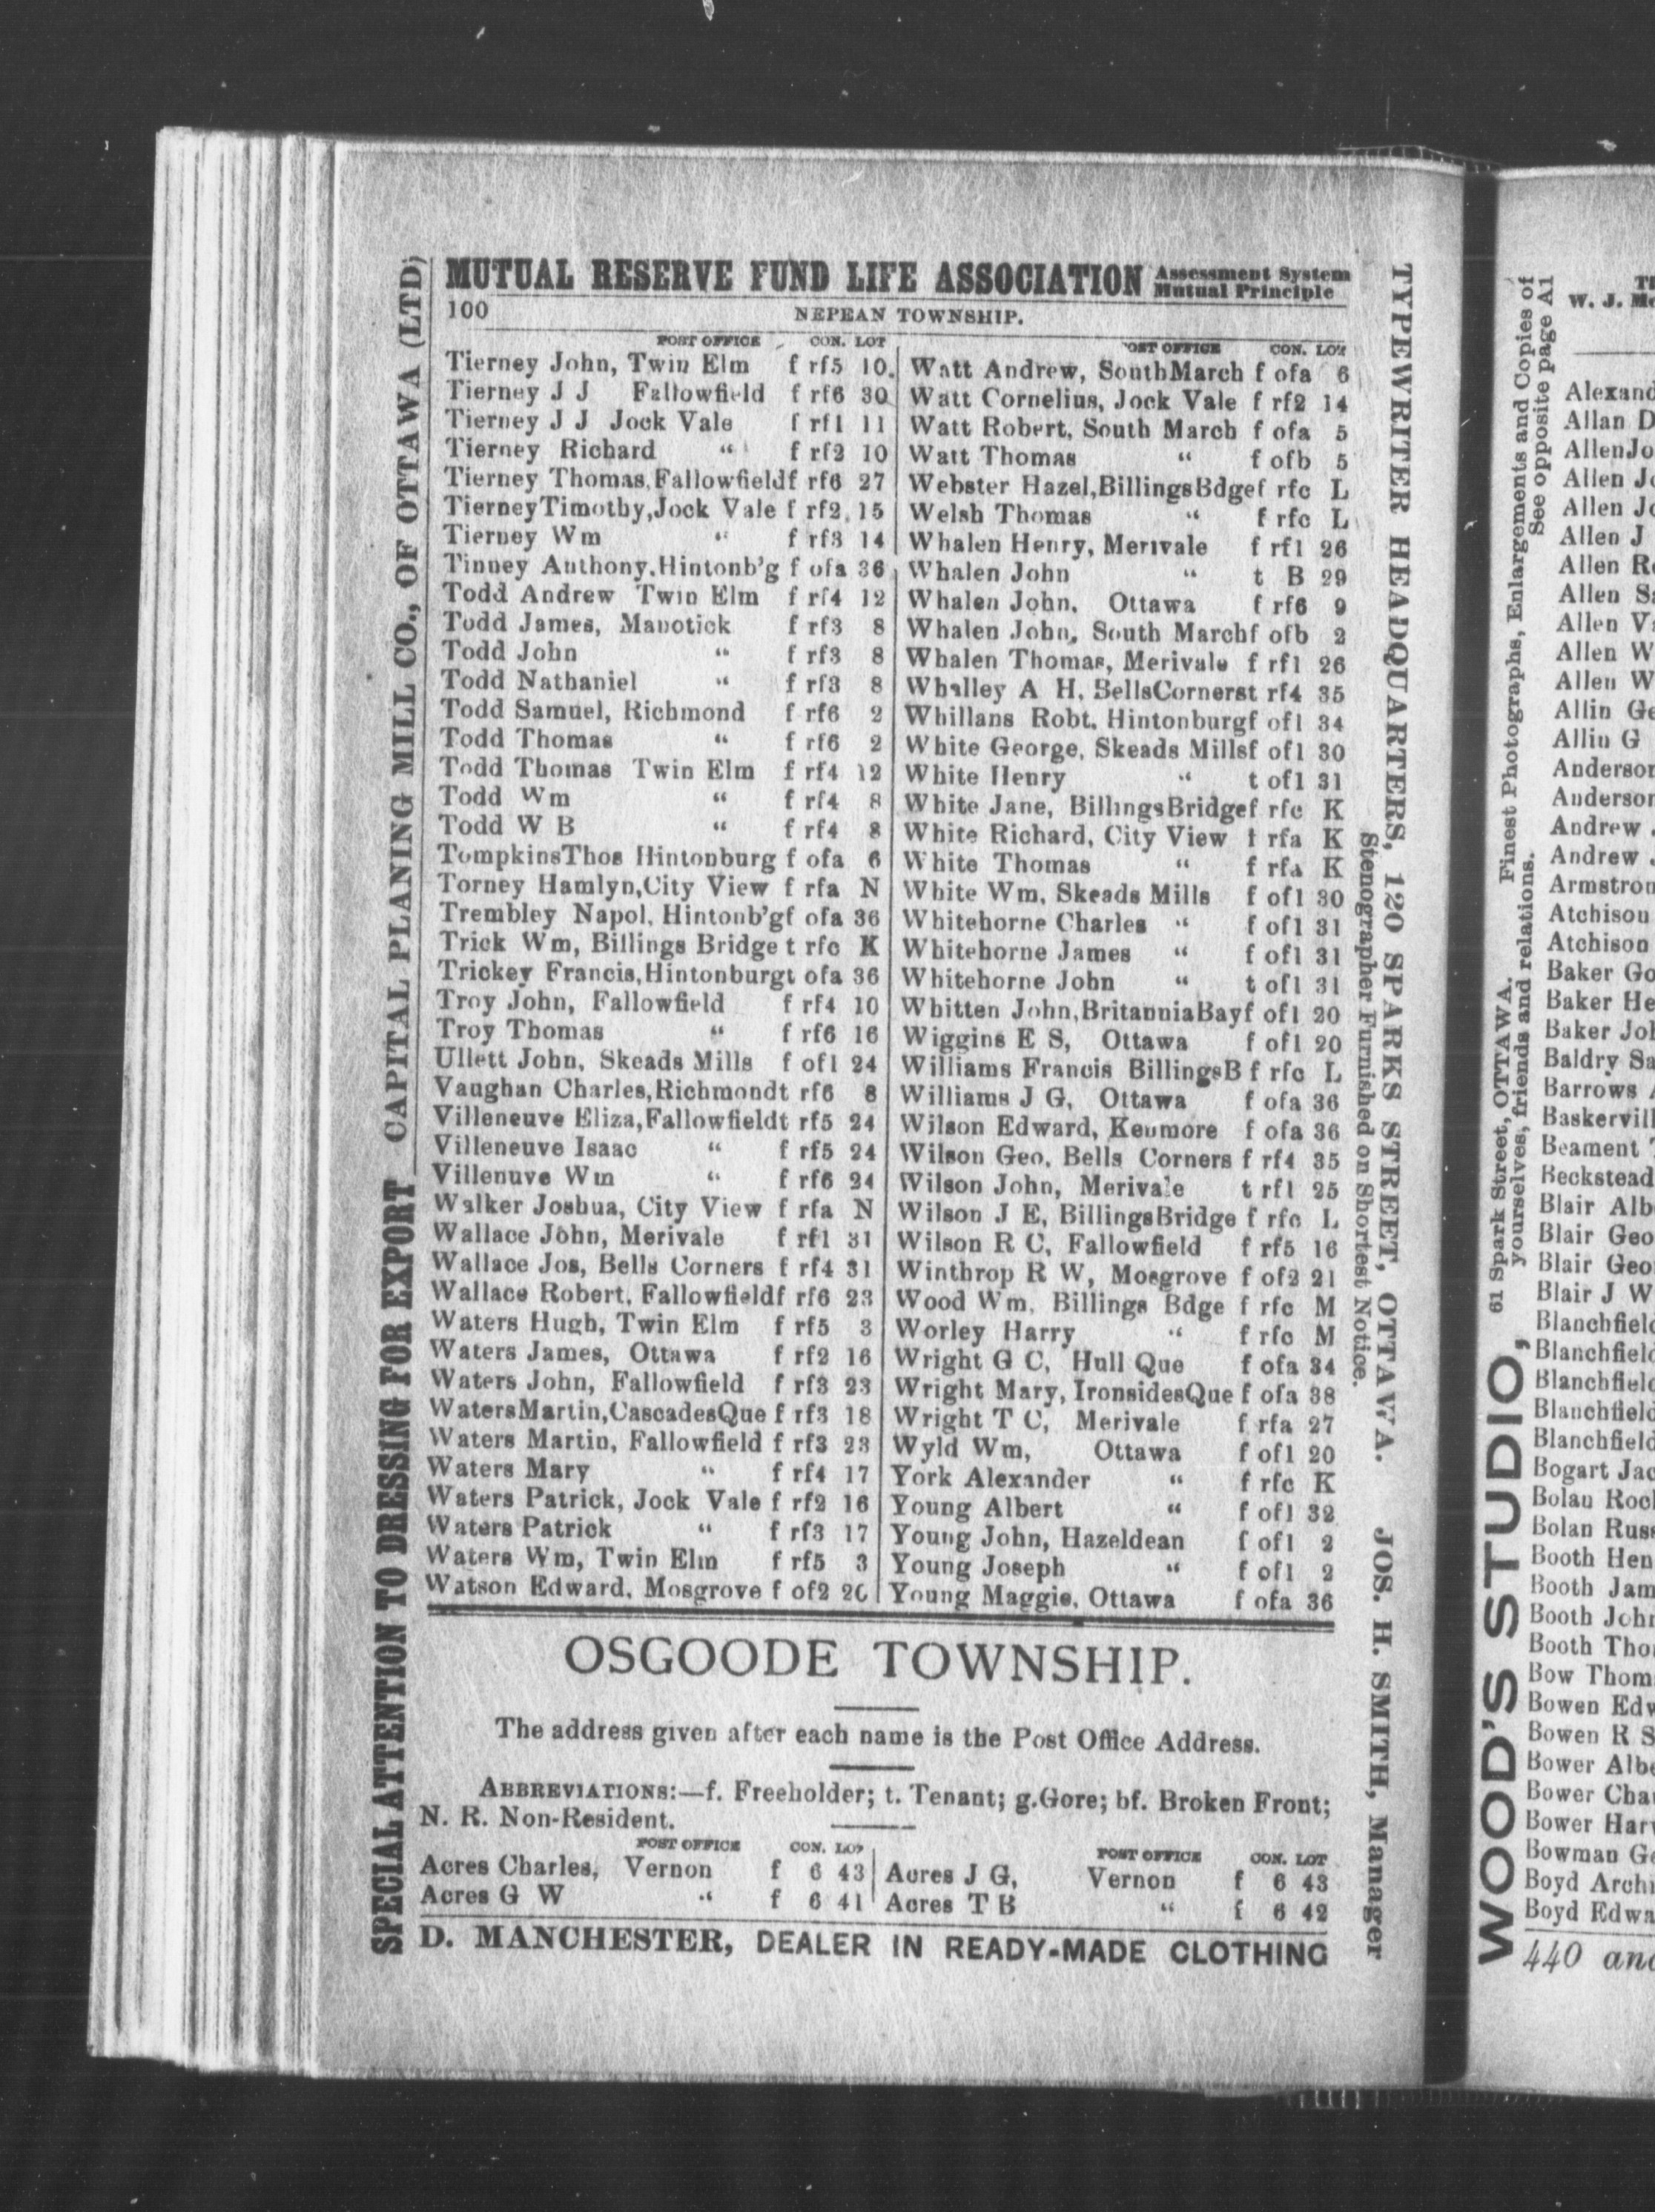 MUTUAL RESERVE FUND LIFE ASSOCIATION Assessment System Mutual Principle
100 NEPEAN TOWNSHIP.
POST OFFICE CON. LOT
Tierney John, Twin Elm f rf5 10
Tierney J J Fallowfield f rf6 30
Tierney J J Jock Vale f rf1 11
Tierney Richard " f rf2 10
Tierney Thomas, Fallowfield f rf6 27
Tierney Timothy, Jock Vale f rf2 15
Tierney Wm " f rf3 14
Tinney Anthony, Hintonb'g f ofa 36
Todd Andrew Twin Elm f rf4 12
Todd James, Manotick f rf3 8
Todd John " f rf3 8
Todd Nathaniel " f rf3 8
Todd Samuel, Richmond f rf6 2
Todd Thomas " f rf6 2
Todd Thomas Twin Elm f rf4 12
Todd Wm " f rf4 8
Todd W B " f rf4 8
Tompkins Thos Hintonburg f ofa 6
Torney Hamlyn, City View f rfa N
Trembley Napol, Hintonb'g f ofa 36
Trick Wm, Billings Bridge t rfc K
Trickey Francis, Hintonburg t ofa 36
Troy John, Fallowfield f rf4 10
Troy Thomas " f rf6 16
Ullett John, Skeads Mills f of1 24
Vaughan Charles, Richmond t rf6 8
Villeneuve Eliza, Fallowfield t rf5 24
Villeneuve Isaac " f rf5 24
Villenuve Wm " f rf6 24
Walker Joshua, City View f rfa N
Wallace John, Merivale f rf1 31
Wallace Jos, Bells Corners f rf4 31
Wallace Robert, Fallowfield f rf6 23
Waters Hugh, Twin Elm f rf5 3
Waters James, Ottawa f rf2 16
Waters John, Fallowfield f rf3 23
Waters Martin, Cascades Que f rf3 18
Waters Martin, Fallowfield f rf3 23
Waters Mary " f rf4 17
Waters Patrick, Jock Vale f rf2 16
Waters Patrick " f rf3 17
Waters Wm, Twin Elm f rf5 3
Watson Edward, Mosgrove f of2 20
POST OFFICE CON. LOT
Watt Andrew, South March f ofa 6
Watt Cornelius, Jock Vale f rf2 14
Watt Robert, South March f ofa 5
Watt Thomas " f ofb 5
Webster Hazel, Billings Bdge f rfc L
Welsh Thomas " f rfc L
Whalen Henry, Merivale f rf1 26
Whalen John " t B 29
Whalen John, Ottawa f rf6 9
Whalen John, South March f ofb 2
Whalen Thomas, Merivale f rf1 26
Whalley A H, Bells Corners t rf4 35
Whillans Robt, Hintonburg f of1 34
White George, Skeads Mills f of1 30
White Henry " t of1 31
White Jane, Billings Bridge f rfc K
White Richard, City View t rfa K
White Thomas " f rfa K
White Wm, Skeads Mills f of1 30
Whitehorne Charles " f of1 31
Whitehorne James " f of1 31
Whitehorne John " t of1 31
Whitten John, Britannia Bay f of1 20
Wiggins E S, Ottawa f of1 20
Williams Francis Billings B f rfc L
Williams J G, Ottawa f ofa 36
Wilson Edward, Kenmore f ofa 36
Wilson Geo, Bells Corners f rf4 35
Wilson John, Merivale t rf1 25
Wilson J E, Billings Bridge f rfc L
Wilson R C, Fallowfield f rf5 16
Winthrop R W, Mosgrove f of2 21
Wood Wm, Billings Bdge f rfc M
Worley Harry " f rfc M
Wright G C, Hull Que f ofa 34
Wright Mary, Ironsides Que f ofa 38
Wright T C, Merivale f rfa 27
Wyld Wm, Ottawa f of1 20
York Alexander " f rfc K
Young Albert " f of1 32
Young John, Hazeldean f of1 2
Young Joseph " f of1 2
Young Maggie, Ottawa f ofa 36
OSGOODE TOWNSHIP.
The address given after each name is the Post Office Address.
ABBREVIATIONS:—f. Freeholder; t. Tenant; g. Gore; bf. Broken Front;
N. R. Non-Resident.
POST OFFICE CON. LOT
Acres Charles, Vernon f 6 43
Acres G W " f 6 41
POST OFFICE CON. LOT
Acres J G, Vernon f 6 43
Acres T B " f 6 42
D. MANCHESTER, DEALER IN READY-MADE CLOTHING
SPECIAL ATTENTION TO DRESSING FOR EXPORT CAPITAL PLANING MILL CO., OF OTTAWA (LTD)
TYPEWRITER HEADQUARTERS, 120 SPARKS STREET, OTTAWA. JOS. H. SMITH, Manager
Stenographer Furnished on Shortest Notice.
WOOD'S STUDIO, 61 Spark Street, OTTAWA. Finest Photographs, Enlargements and Copies of
yourselves, friends and relations. See opposite page A1
W. J.
Alexand
Allan D
Allen Jo
Allen Jo
Allen Jo
Allen J
Allen Ro
Allen Sa
Allen Va
Allen W
Allen W
Allin Ge
Allin G
Anderson
Anderson
Andrew
Andrew
Armstron
Atchison
Atchison
Baker Go
Baker He
Baker Joh
Baldry Sa
Barrows
Baskervill
Beament
Beckstead
Blair Alb
Blair Geo
Blair Geo
Blair J W
Blanchfield
Blanchfield
Blanchfield
Blanchfield
Blanchfield
Bogart Jac
Bolau Roc
Bolan Russ
Booth Hen
Booth Jam
Booth John
Booth Tho
Bow Thom
Bowen Edw
Bowen R S
Bower Albe
Bower Char
Bower Harv
Bowman Ge
Boyd Archi
Boyd Edwa
440 and